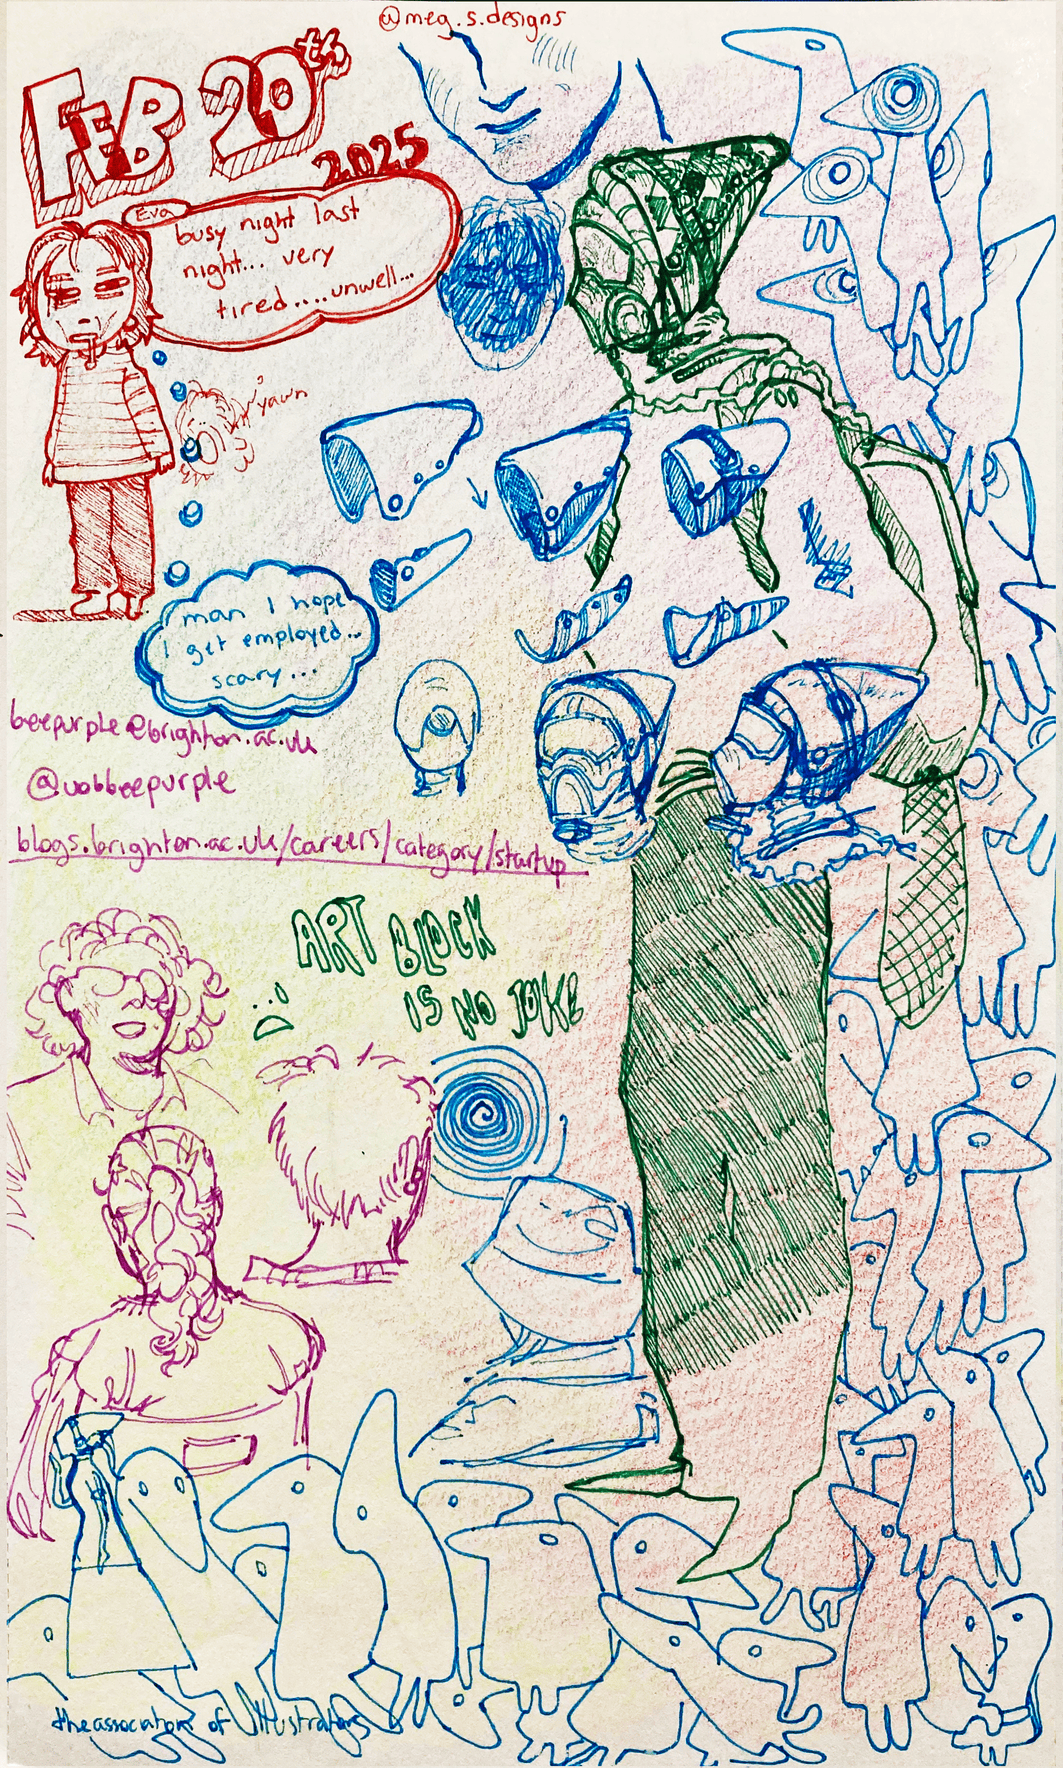 @meg.s.designs
FEB 20th
2025
Eva
busy night last
night... very
tired....unwell...
yawn
man I hope
I get employed...
scary...
beepurple@brighton.ac.uk
@uobbeepurple
blogs.brighton.ac.uk/careers/category/startup
ART BLOCK
IS NO JOKE
:(
the association of Illustrators